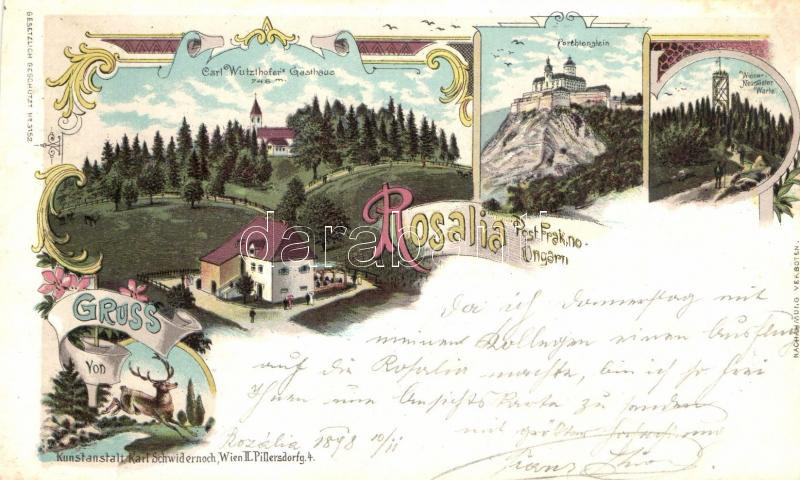 GESETZLICH GESCHÜTZT Nr. 3152
Carl Wutzlhofer's Gasthaus
748 m.
Forchtenstein
Wiener-
Neustädter
Warte
Rosalia
Post Frakno-
Ungarn
darabanth
GRUSS
Von
NACHAHMUNG VERBOTEN.
Da ich Donnerstag mit
meinen Kollegen einen Ausflug
auf die Rosalia machte, bin ich so frei
Ihnen eine Ansichts Karte zu senden
mit größter
Rozália 1898 10/11
Franz
Kunstanstalt Karl Schwidernoch, Wien II. Pillersdorfg. 4.